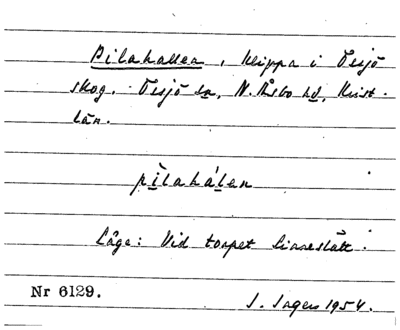 Pilahallen, klippa i Örsjö
skog. Örsjö sn, N. Åsbo hd, Krist.
län.
pìlahálen
Läge: Vid torpet Linneslätt.
Nr 6129.
J. Ingers 1954.